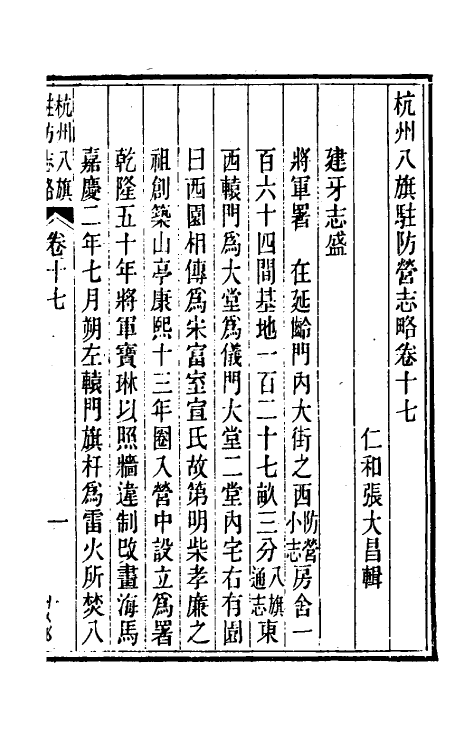 杭州八旗駐防營志略卷十七
仁和張大昌輯
建牙志盛
將軍署　在延齡門內大街之西防營小志房舍一
百六十四間基地一百二十七畝三分八旗通志東
西轅門爲大堂爲儀門大堂二堂內宅右有園
曰西園相傳爲宋富室宣氏故第明柴孝廉之
祖創築山亭康熙十三年圈入營中設立爲署
乾隆五十年將軍寶琳以照牆違制改畫海馬
嘉慶二年七月朔左轅門旗杆爲雷火所焚八
杭州八旗
駐防志略
卷十七
一